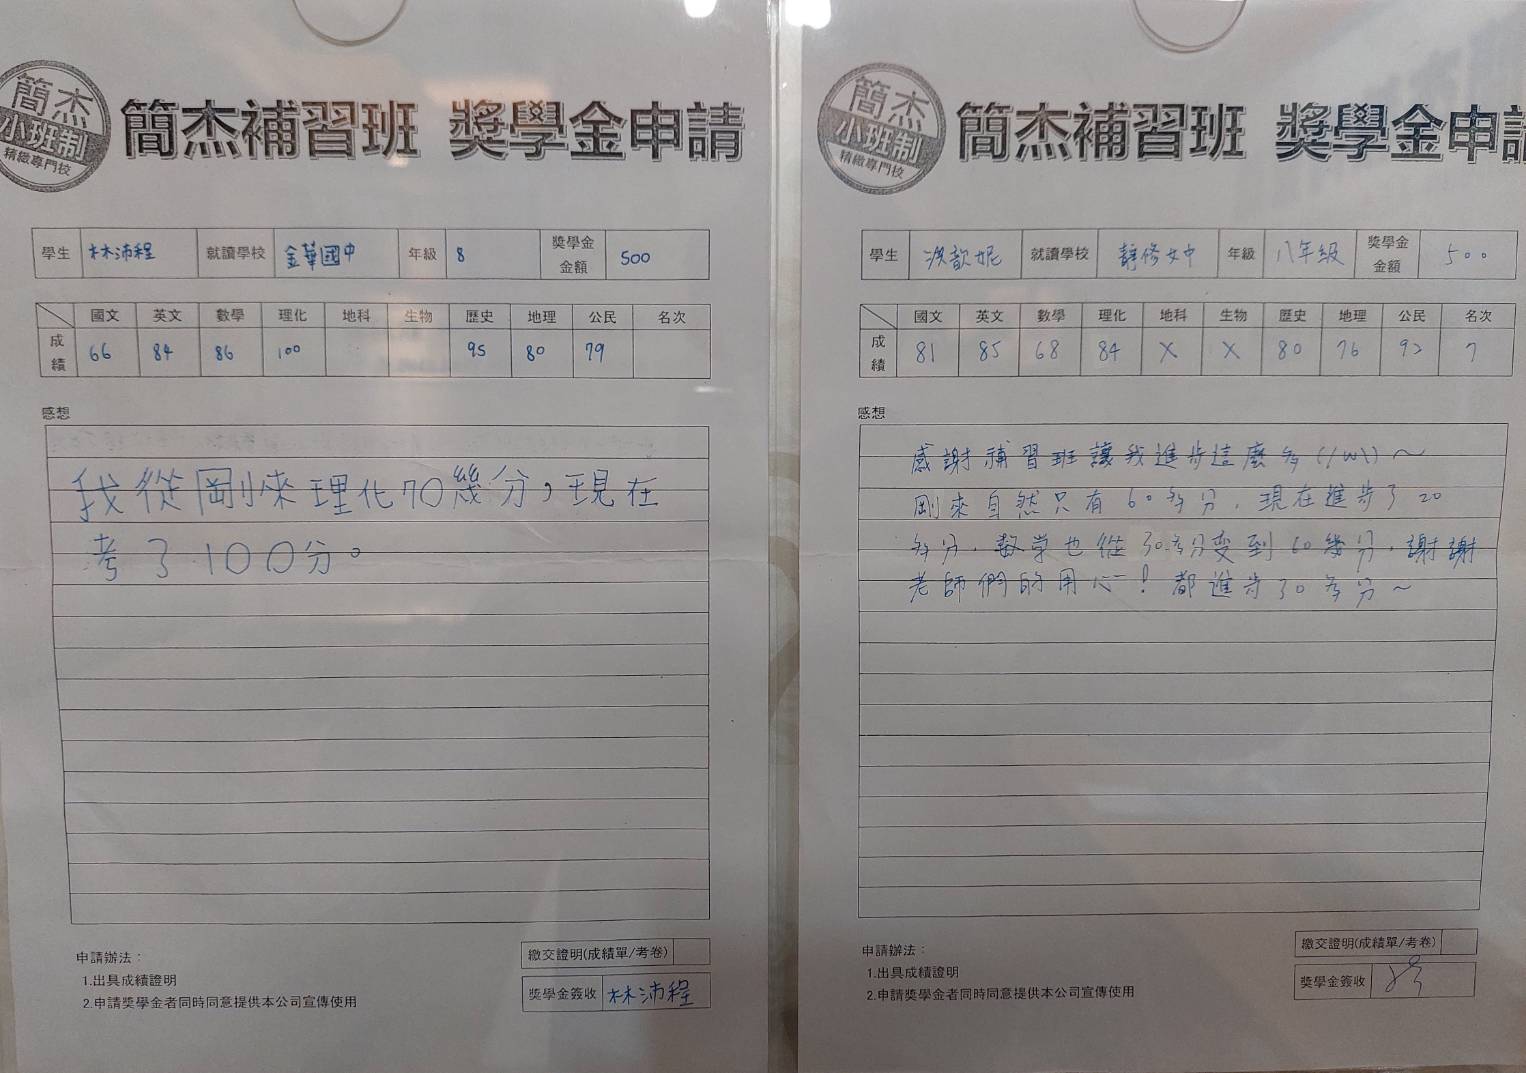 簡杰
小班制
精緻專門校
簡杰補習班 獎學金申請
學生 林沛程 就讀學校 金華國中 年級 8 獎學金金額 500
國文 英文 數學 理化 地科 生物 歷史 地理 公民 名次
成績 66 84 86 100 95 80 79
感想
我從剛來理化70幾分，現在
考了100分。
申請辦法：
1.出具成績證明
2.申請獎學金者同時同意提供本公司宣傳使用
繳交證明(成績單/考卷)
獎學金簽收 林沛程
簡杰
小班制
精緻專門校
簡杰補習班 獎學金申請
學生 洪歆妮 就讀學校 靜修女中 年級 八年級 獎學金金額 500
國文 英文 數學 理化 地科 生物 歷史 地理 公民 名次
成績 81 85 68 84 X X 80 76 92 7
感想
感謝補習班讓我進步這麼多(/w\)～
剛來自然只有60多分，現在進步了20
多分，數学也從30多分变到60幾分，謝謝
老師們的用心！都進步30多分～
申請辦法：
1.出具成績證明
2.申請獎學金者同時同意提供本公司宣傳使用
繳交證明(成績單/考卷)
獎學金簽收